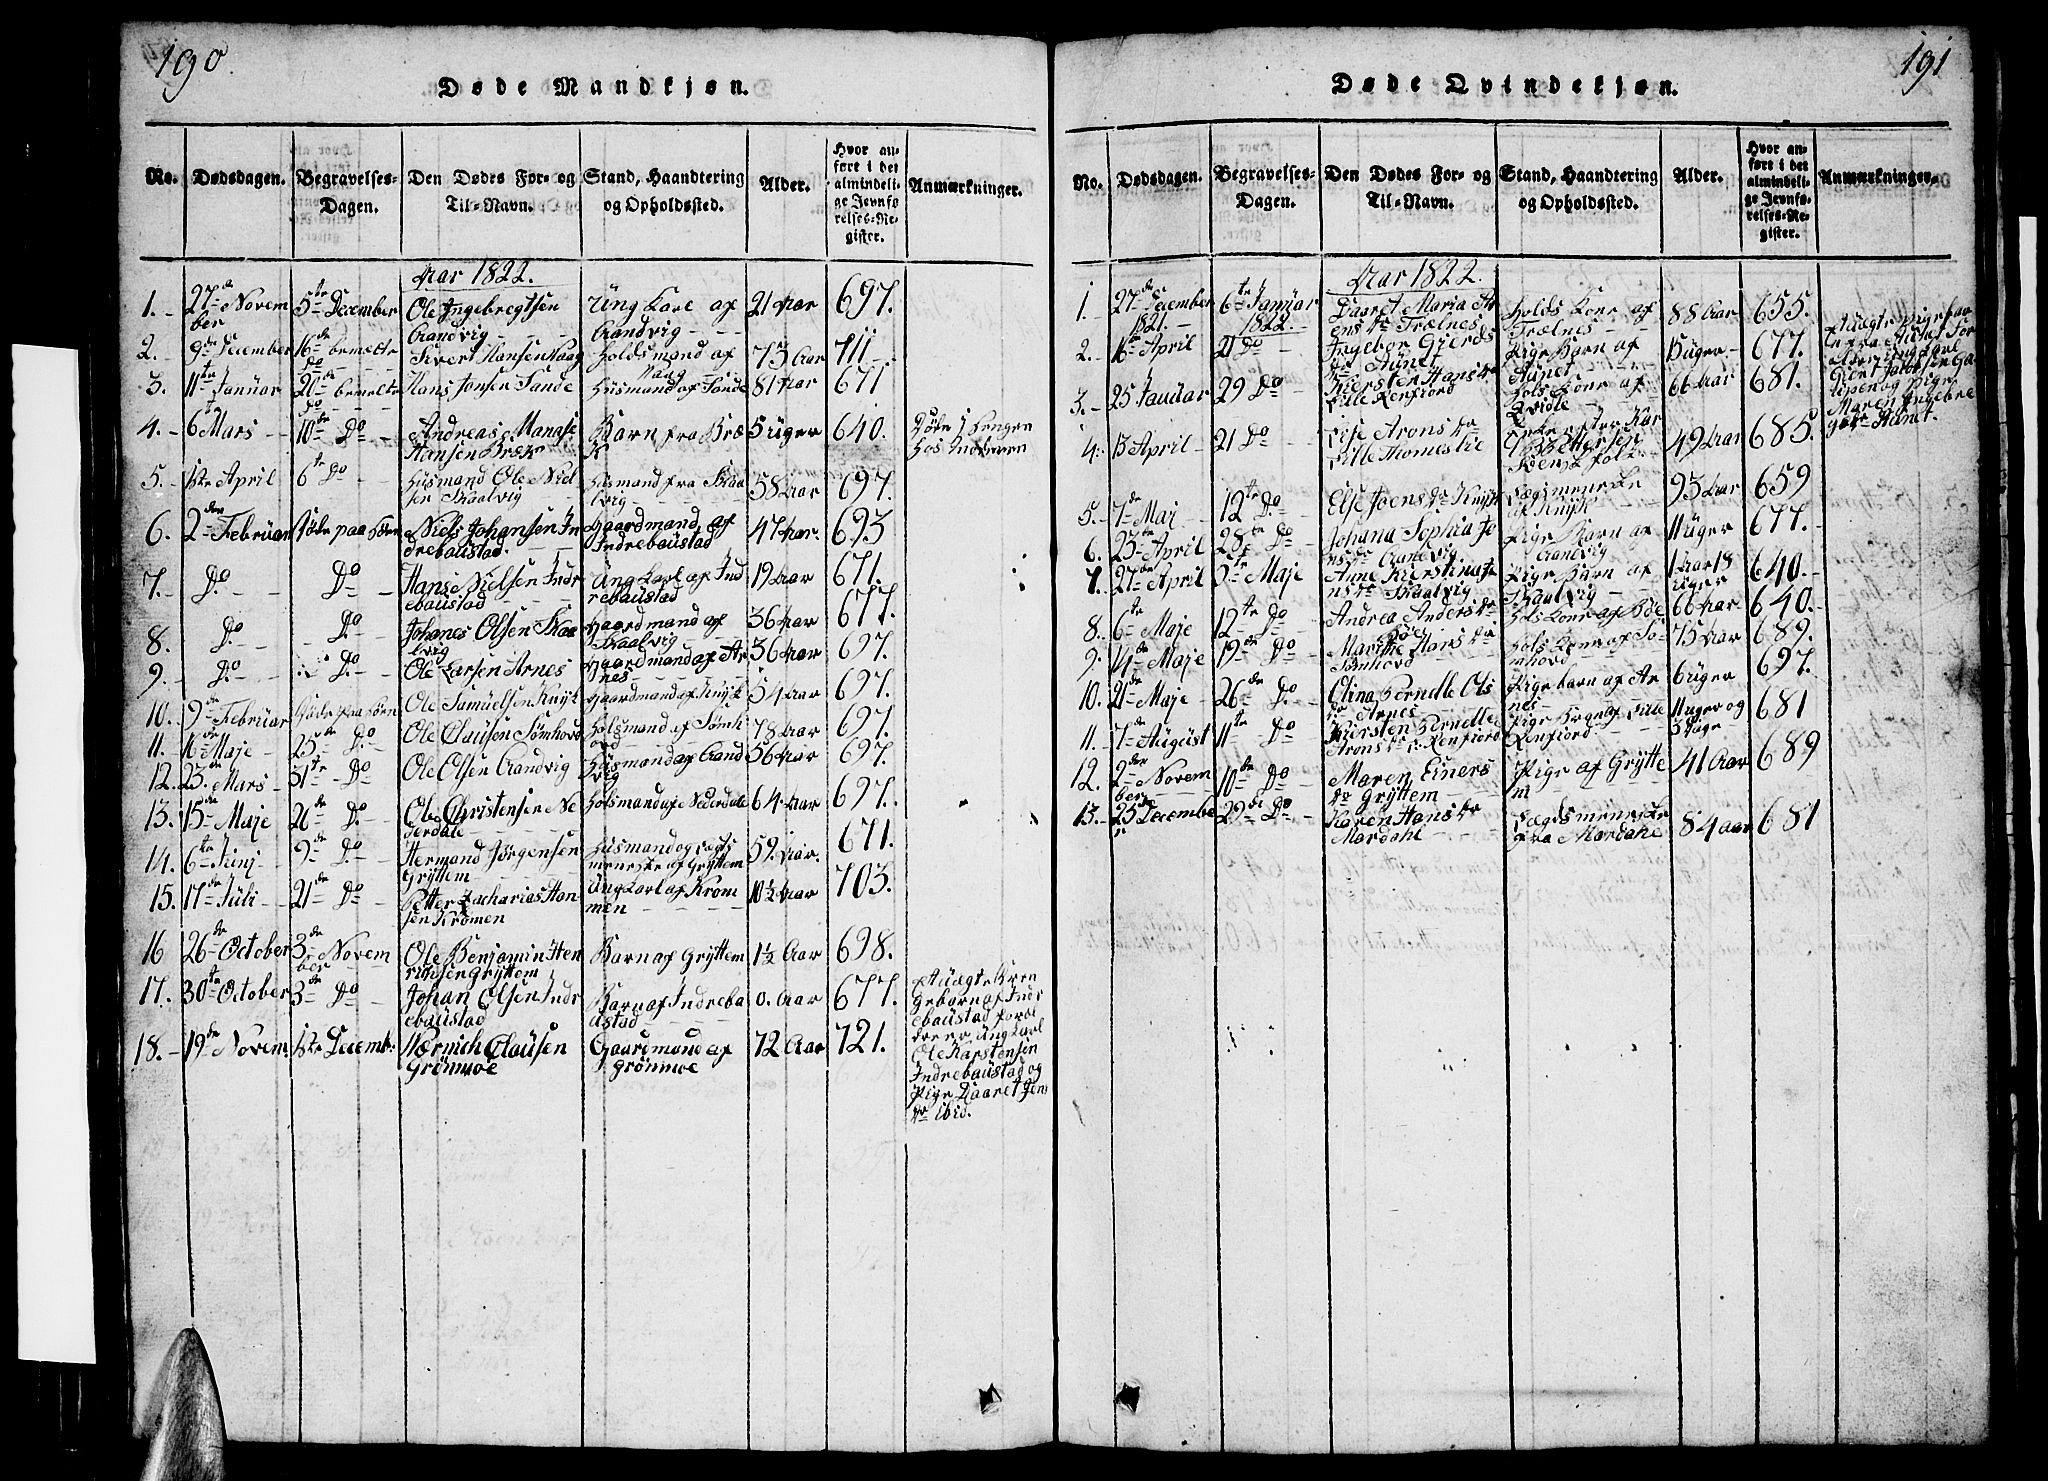 190.
Døde Mandkjøn.
No. Dødsdagen. Begravelses-Dagen. Den Dødes For- og Til-Navn. Stand, Haandtering og Opholdssted. Alder. Hvor anført i det almindelige Jevnførelses-Register. Anmærkninger.
Aar 1822.
1. 27de November 5te December Ole Ingebregtsen Crandvig Ung Karl af Crandvig 21 Aar 697.
2. 9de December 16de bemelte Do Sivert Hansen Haag Holdsmand af Haag 75 Aar 711
3. 11te Januar 20de bemelte Do Hans Jonsen Sande Husmand af Sande 81 Aar 671
4. 6te Mars 10de Do Andreas Manase Hansen Bræk Barn fra Bræk 5 Uger 640. Døde i Sengen hos
5. 1ste April 6te Do Husmand Ole Nielsen Skaalvig Husmand fra Skaalvig 58 Aar 697.
6. 2den Februar Døde paa Søen Niels Johansen Indrebaustad Gaardmand af Indrebaustad 47 Aar 693
7. Do Do Hans Nielsen Indrebaustad Ung Karl af Indrebaustad 19 Aar 671.
8. Do Do Johanes Olsen Skaalvig Gaardmand af Skaalvig 36 Aar 677.
9. Do Do Ole Larsen Arnes Gaardmand af Arnes 36 Aar 697.
10. 9de Februar Døde paa Søen Ole Samuelsen Knyk Gaardmand af Knyk 54 Aar 697.
11. 16de Maje 23de Do Ole Clausen Sømhovd Holsmand af Sømhovd 78 Aar 697.
12. 23de Mars 31te Do Ole Olsen Crandvig Husmand af Crandvig 56 Aar 697.
13. 15de Maje 26de Do Ole Christensen Nederdale Holsmand af Nederdale 64 Aar 697.
14. 6te Junj 9de Do Hermand Jørgensen Gryttem Husmand og Lægsmeneske af Gryttem 59 Aar. 671.
15. 17de Juli 21de Do Petter Zacharias Hansen Kromen Ung Karl af Krommen 10½ Aar 703.
16 26de October 3de November Ole Benjamin Henriksen Gryttem Barn af Gryttem 1½ Aar 698.
17. 30te October 3de Do Johan Olsen Indrebaustad Barn af Indrebaustad 0. Aar 677. Auægte Drengebarn af Indrebaustad forældrere Ung Karl Ole Karstensen Indrebaustad og Pige Daaret Jensdr ibid.
18. 19de Novem 1ste Decemb: Clausen Grønmoe Gaardmand af Grønmoe 72 Aar 721.
191
Døde Qvindekjøn.
No. Dødsdagen. Begravelses-Dagen. Den Dødes For- og Til-Navn. Stand, Haandtering og Opholdssted. Alder. Hvor anført i det almindelige Jevnførelses-Register. Anmærkninger.
Aar 1822.
1. 27de December 1821. 6te Januar 1822. Daaret Maria Trælnes Holds Kone af Trælnes 88 Aar 655.
2. 16de April 21 Do Ingebor Giertsdr Aunet Pige Barn af Aunet 15 Uger 677. Auægte pigebarn fra Aunet Forældre ungkarl Giert Jacobsen og Pige Maren Ingebre Aunet.
3. 25 Januar 29 Do Kiersten Hansdr Lille Renfiord Hols Kone af Qvidle 66 Aar 681.
4. 13 April 21 Do Lise Aronsdr Lille Thomeslie Enke efter 49 Aar 685.
5. 7de Maj 12te Do Else Joensdr Knyk Lægsmeneske Knyk 93 Aar 659
6. 23de April 28de Do Johana Sophia Jonsdr Crandvig Pige Barn af Crandvig 11 Uger 677.
7. 27de April 5te Maje Anne Kierstina Skaalvig Pige Barn af Skaalvig 1 Aar 18 Uger 640.
8. 6te Maje 12te Do Andrea Andersdr Bøe Hols Kone af Bøe 66 Aar 640.
9. 14de Maje 19de Do Marithe Larsdr Sømhovd Hols Kone af Sømhovd 75 Aar 689.
10. 21de Maje 26de Do Olina Pernelle Olsdr Arnes Pige barn af Arnes 6 Uger 697.
11. 7de August 11te Do Kiersten Pernelle Aronsdr L: Renfiord Pige Barn af Lille Renfiord 11 Uger og 3 Dage 681
12. 2de November 10de Do Maren Einersdr Gryttem Pige af Gryttem 41 Aar 689
13. 25de December 29de Do Karen Hansdr Mardahl Lægdsmeneske fra Mardahl 84 Aar 681